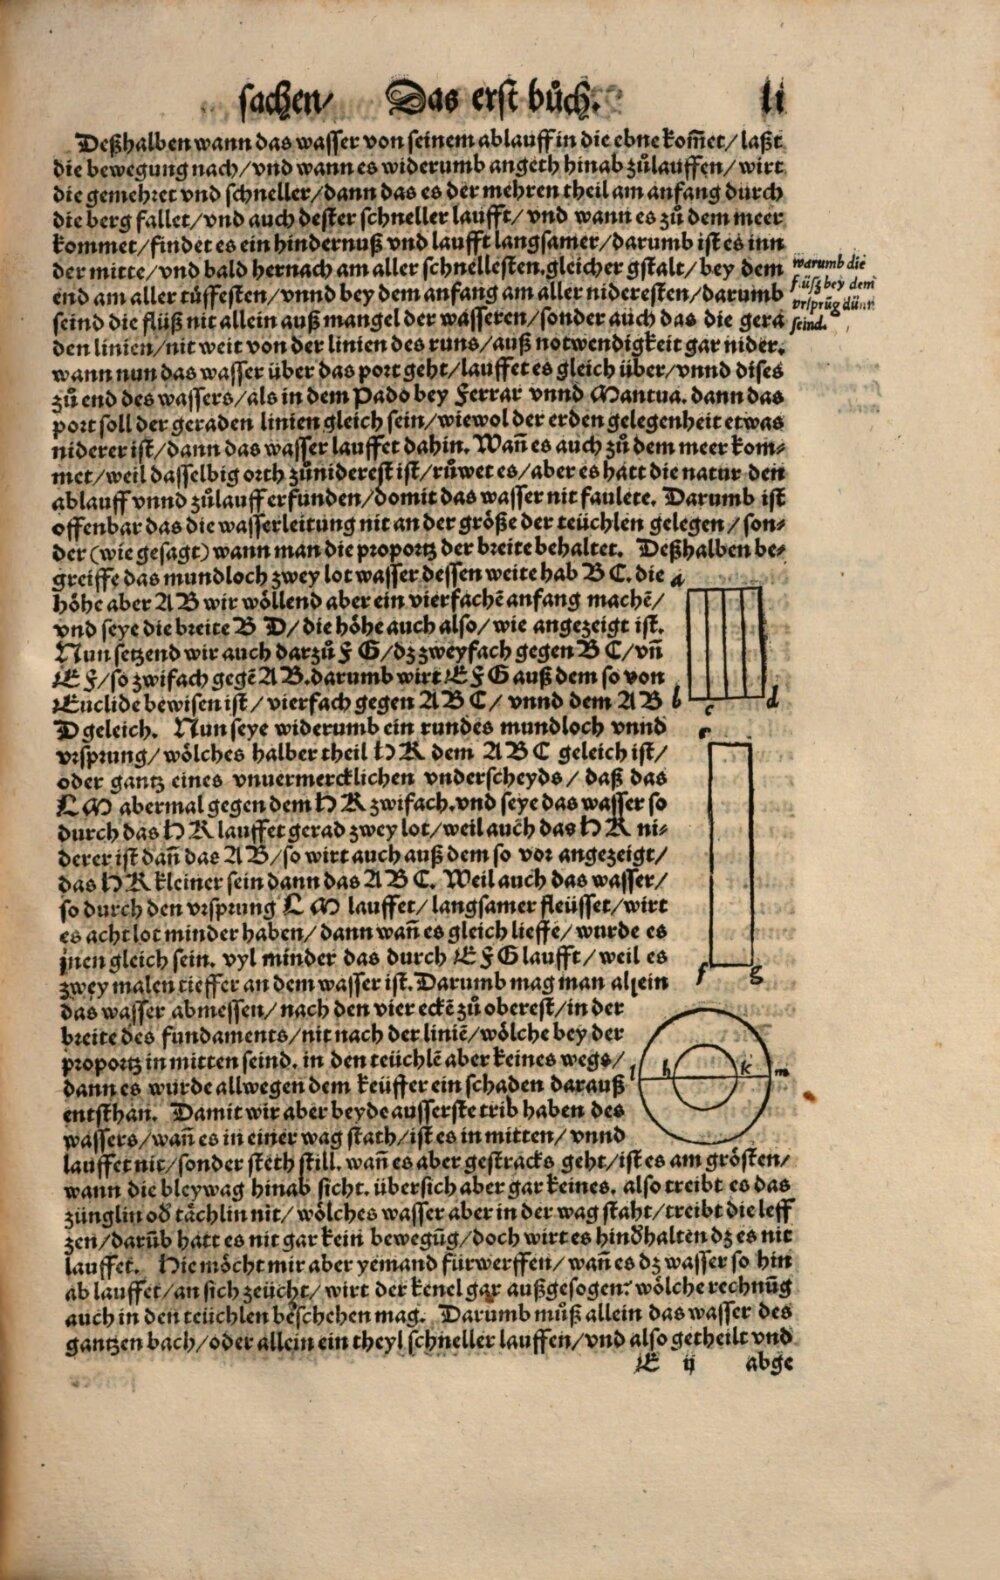 sachen/ Das erst bůch. li
Deßhalben wann das wasser von seinem ablauff in die ebne kom̃et/ laßt
die bewegung nach/ vnd wann es widerumb angeth hinab zůlauffen/ wirt
die gemehret vnd schneller/ dann das es der mehren theil am anfang durch
die berg fallet/ vnd auch dester schneller laufft/ vnd wann es zů dem meer
kommet/ findet es ein hindernuß vnd laufft langsamer/ darumb ist es inn
der mitte/ vnd bald hernach am aller schnellesten. gleicher gstalt/ bey dem
end am aller tüffesten/ vnnd bey dem anfang am aller nideresten/ darumb
seind die flüß nit allein auß mangel der wasseren/ sonder auch das die gera
den linien/ nit weit von der linien des runs/ auß notwendigkeit gar nider.
warumb die
flüß bey dem
vrsprũg dünn
seind.
wann nun das wasser über das port geht/ lauffet es gleich über/ vnnd dises
zů end des wassers/ als in dem Pado bey Ferrar vnnd Mantua. dann das
port soll der geraden linien gleich sein/ wiewol der erden gelegenheit etwas
niderer ist/ dann das wasser lauffet dahin. Wañ es auch zů dem meer kom-
met/ weil dasselbig orth zůniderest ist/ růwet es/ aber es hatt die natur den
ablauff vnnd zůlauff erfunden/ domit das wasser nit faulete. Darumb ist
offenbar das die wasserleitung nit an der größe der teüchlen gelegen/ son-
der (wie gesagt) wann man die proportz der breite behaltet. Deßhalben be-
greiffe das mundloch zwey lot wasser dessen weite hab B C. die
höhe aber A B wir wöllend aber ein vierfachẽ anfang machẽ/
vnd seye die breite B D/ die höhe auch also/ wie angezeigt ist.
Nun setzend wir auch darzů F G/ dz zweyfach gegen B C/ vñ
E F/ so zwifach gegẽ A B. darumb wirt E F G auß dem so von
Euclide bewisen ist/ vierfach gegen A B C/ vnnd dem A B
D geleich. Nun seye widerumb ein rundes mundloch vnnd
vrsprung/ wölches halber theil H K dem A B C geleich ist/
oder gantz eines vnuermercklichen vnderscheyds/ daß das
L M abermal gegen dem H K zwifach. vnd seye das wasser so
durch das H K lauffet gerad zwey lot/ weil auch das H K ni-
derer ist dañ das A B/ so wirt auch auß dem so vor angezeigt/
das H K kleiner sein dann das A B C. Weil auch das wasser/
so durch den vrsprung L M lauffet/ langsamer fleüsset/ wirt
es acht lot minder haben/ dann wañ es gleich lieffe/ wurde es
jnen gleich sein. vyl minder das durch E F G laufft/ weil es
zwey malen tieffer an dem wasser ist. Darumb mag man allein
das wasser abmessen/ nach den vier eckẽ zů oberest/ in der
breite des fundaments/ nit nach der liniẽ/ wölche bey der
proportz in mitten seind. in den teüchlẽ aber keines wegs/
dann es wurde allwegen dem keüffer ein schaden darauß
entsthan. Damit wir aber beyde ausserste trib haben des
wassers/ wañ es in einer wag stath/ ist es in mitten/ vnnd
lauffet nit/ sonder steth still. wañ es aber gestracks geht/ ist es am grösten/
wann die bleywag hinab sicht. übersich aber gar keines. also treibt es das
zünglin oď tächlin nit/ wölches wasser aber in der wag staht/ treibt die leff
zen/ darũb hatt es nit gar kein bewegũg/ doch wirt es hinďhalten dz es nit
lauffet. Hie möcht mir aber yemand fürwerffen/ wañ es dz wasser so hin
ab lauffet/ an sich zeücht/ wirt der kenel gar außgesogen: wölche rechnũg
auch in den teüchlen beschehen mag. Darumb můß allein das wasser des
gantzen bach/ oder allein ein theyl schneller lauffen/ vnd also getheilt vnd
E ij abge
a
b c d
e
f g
l h k m